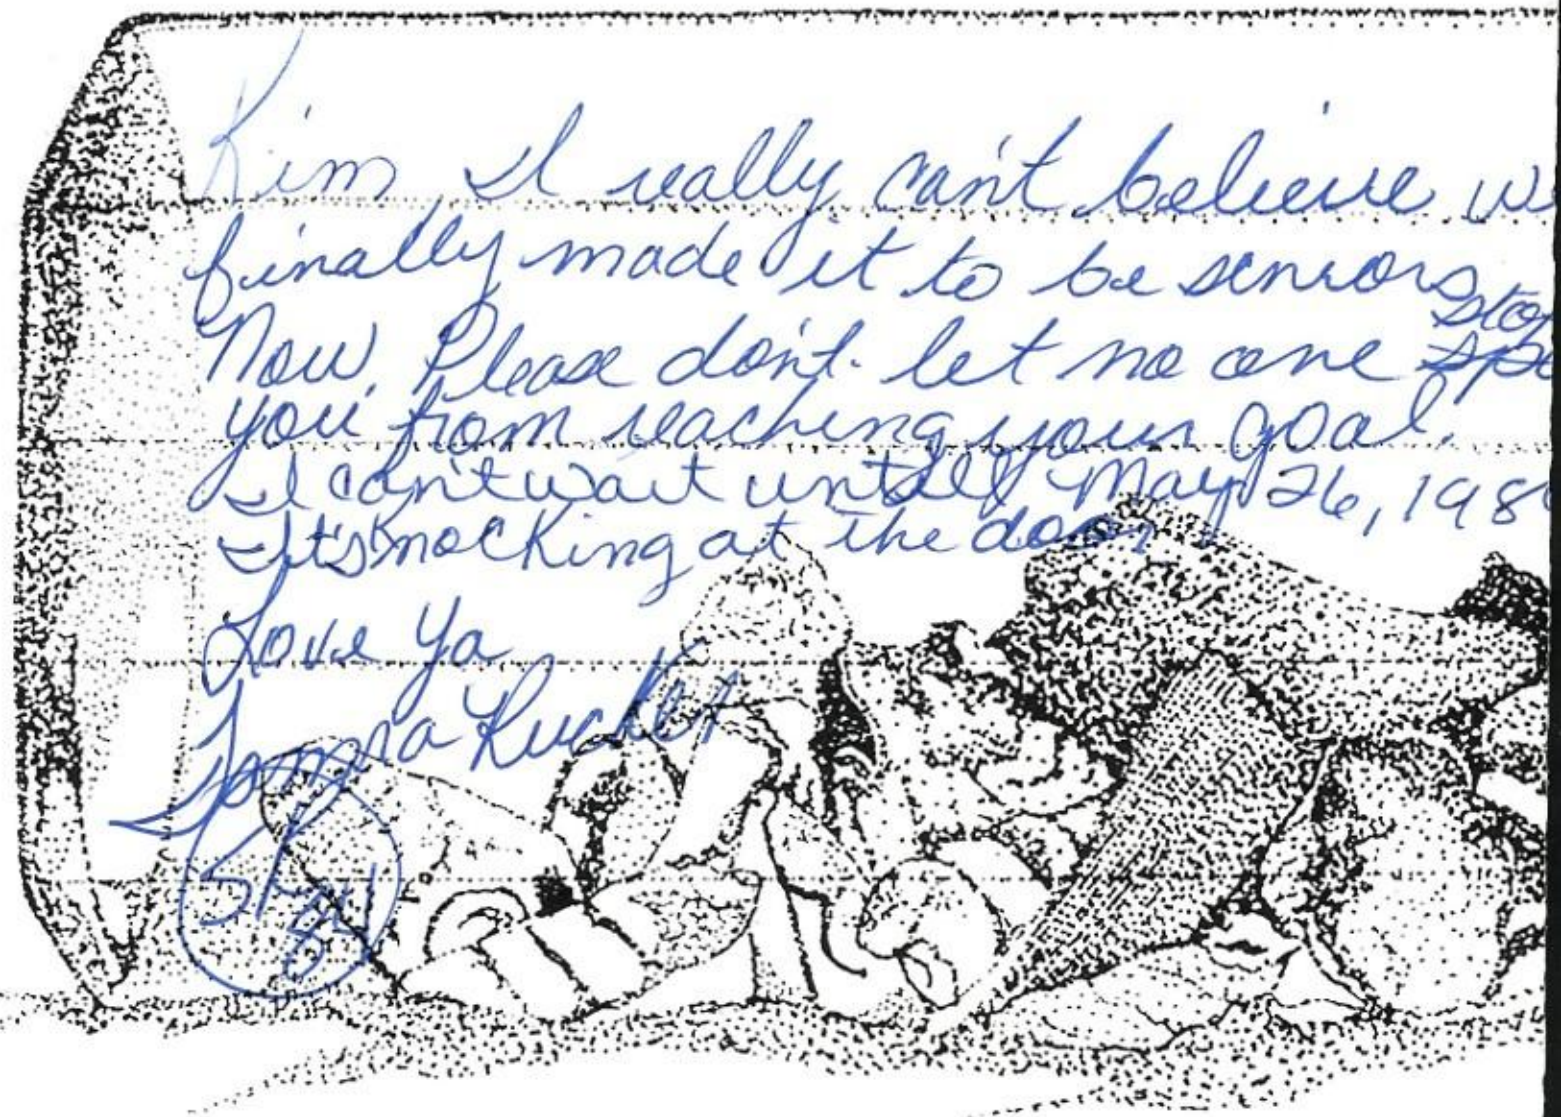 Kim I really can't believe w
finally made it to be seniors
Now. Please don't let no one stop
you from reaching your goal.
I can't wait until May 26, 198
It's nocking at the door
Love Ya
Rucker
84